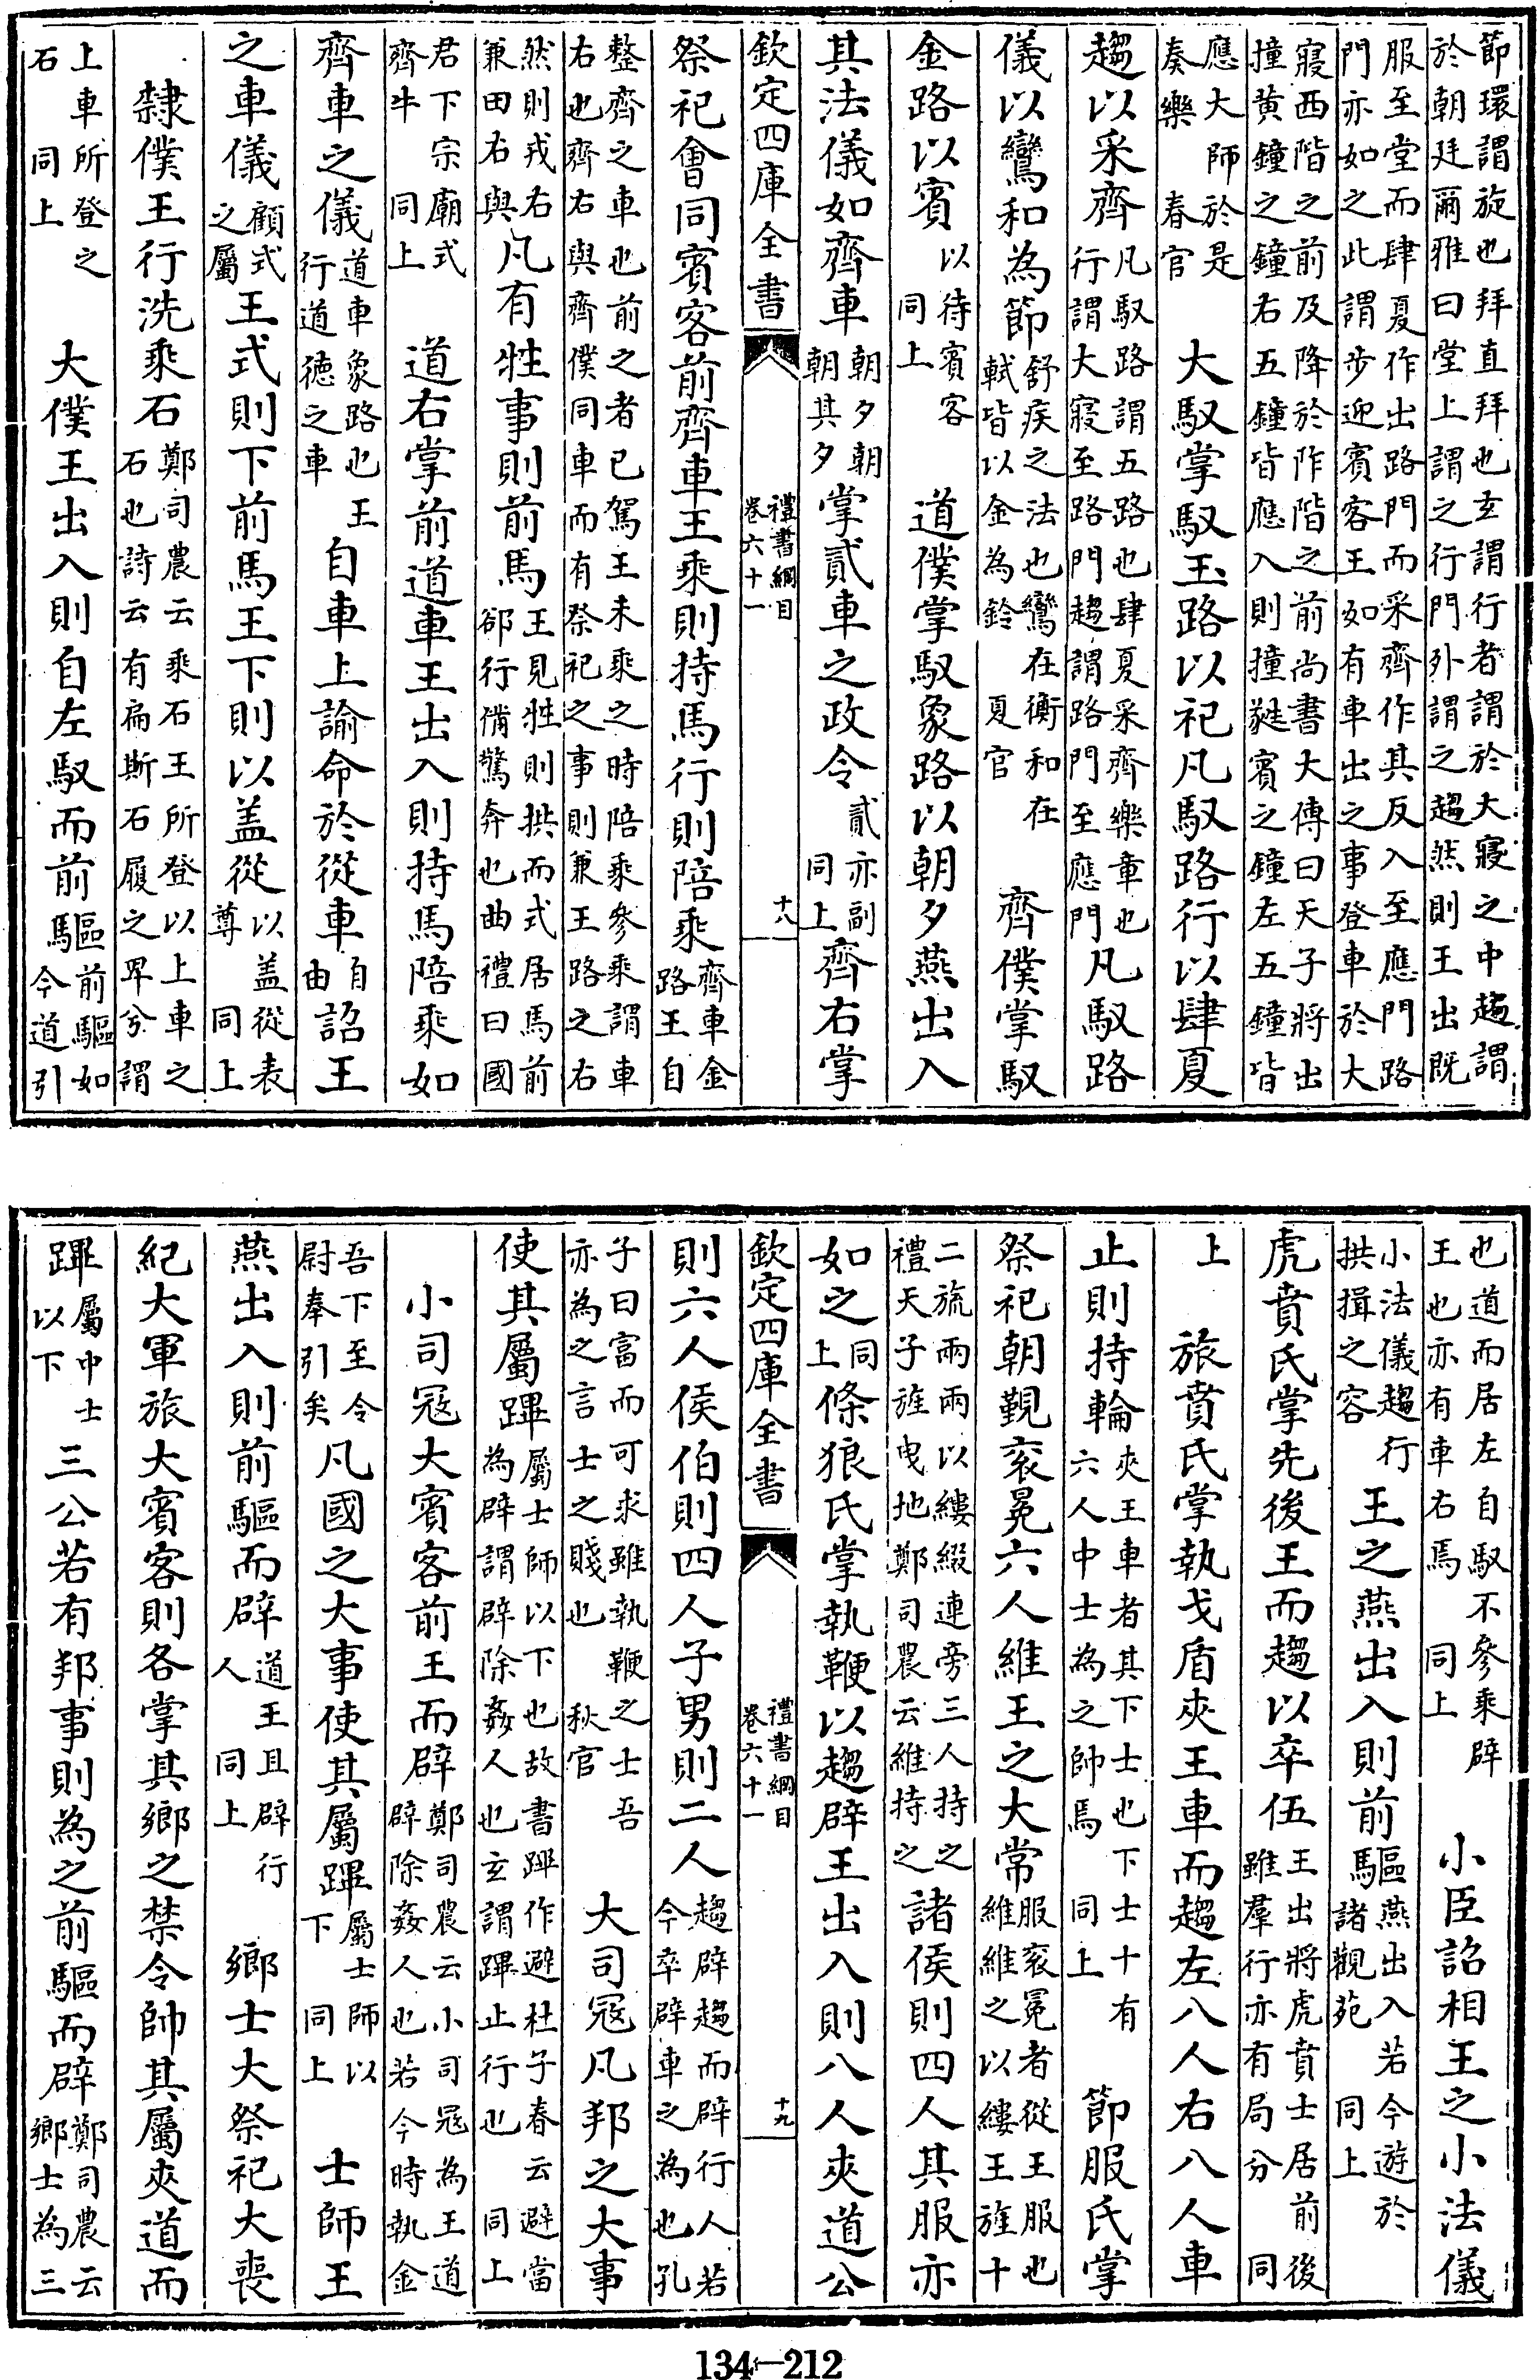 節環謂旋也拜直拜也玄謂行者謂於大寢之中趨謂
於朝廷爾雅曰堂上謂之行門外謂之趨然則王出既
服至堂而肆夏作出路門而采齊作其反入至應門路
門亦如之此謂步迎賓客王如有車出之事登車於大
寢西階之前及降於阼階之前尚書大傳曰天子將出
撞黄鐘之鐘右五鐘皆應入則撞蕤賓之鐘左五鐘皆
應大師於是奏樂 春官 大馭掌馭玉路以祀凡馭路行以肆夏
趨以采齊凡馭路謂五路也肆夏采齊樂章也行謂大寢至路門趨謂路門至應門凡馭路
儀以鸞和為節舒疾之法也鸞在衡和在軾皆以金為鈴 夏官 齊僕掌馭
金路以賓以待賓客 同上 道僕掌馭象路以朝夕燕出入
其法儀如齊車朝夕朝朝其夕掌貳車之政令貳亦副 同上 齊右掌
欽定四庫全書 禮書綱目 卷六十一 十八
祭祀會同賓客前齊車王乘則持馬行則陪乘齊車金路王自
整齊之車也前之者已駕王未乘之時陪乘參乘謂車
右也齊右與齊僕同車而有祭祀之事則兼王路之右
然則戎右兼田右與凡有牲事則前馬王見牲則拱而式居馬前卻行備驚奔也曲禮曰國
君下宗廟式齊牛 同上 道右掌前道車王出入則持馬陪乘如
齊車之儀道車象路也王行道德之車自車上諭命於從車自由詔王
之車儀顧式之屬王式則下前馬王下則以盖從以盖從表尊 同上
隸僕王行洗乘石鄭司農云乘石王所登以上車之石也詩云有扁斯石履之卑兮謂
上車所登之石 同上 大僕王出入則自左馭而前驅前驅如今道引
也道而居左自馭不參乘辟王也亦有車右馬 同上 小臣詔相王之小法儀
小法儀趨行拱揖之容 王之燕出入則前驅燕出入若今游於諸觀苑 同上
虎賁氏掌先後王而趨以卒伍王出將虎賁士居前後雖羣行亦有局分 同
上 旅賁氏掌執戈盾夾王車而趨左八人右八人車
止則持輪夾王車者其下士也下士十有六人中士為之帥馬 同上 節服氏掌
祭祀朝覲衮冕六人維王之大常服衮冕者從王服也維維之以縷王旌十
二旒兩兩以縷綴連旁三人持之
禮天子旌曳地鄭司農云維持之諸侯則四人其服亦
如之同上條狼氏掌執鞭以趨辟王出入則八人夾道公
欽定四庫全書 禮書綱目 卷六十一 十九
則六人侯伯則四人子男則二人趨辟趨而辟行人若今卒辟車之為也孔
子曰富而可求雖執鞭之士吾亦為之言士之賤也 秋官 大司寇凡邦之大事
使其屬蹕屬士師以下也故書蹕作避杜子春云避當為辟謂辟除姦人也玄謂蹕止行也 同上
小司寇大賓客前王而辟鄭司農云小司寇為王道辟除姦人也若今時執金
吾下至令尉奉引矣凡國之大事使其屬蹕屬士師以下 同上 士師王
燕出入則前驅而辟道王且辟行人 同上 鄉士大祭祀大喪
紀大軍旅大賓客則各掌其鄉之禁令帥其屬夾道而
蹕屬中士以下 三公若有邦事則為之前驅而辟鄭司農云鄉士為三
134—212